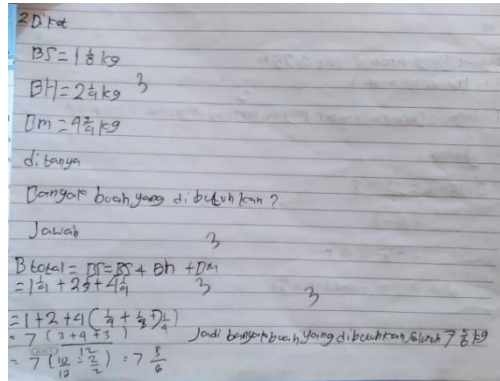 2 Diket
BS = 1 1/8 kg
BH = 2 1/4 kg 3
Bm = 4 2/4 kg
ditanya
Banyak buah yang dibutuhkan ?
Jawab
3
B total = BS = BS + Bh + Bm
= 1 1/4 + 2 + 4 1/4 3
3
= 1 + 2 + 4 (
= 7 ( 3 + 4 + 3 ) Jadi banyak buah yang dibutuhkan 7 5/6 kg
= 7 ( 10/12 : 2/2 ) = 7 5/6